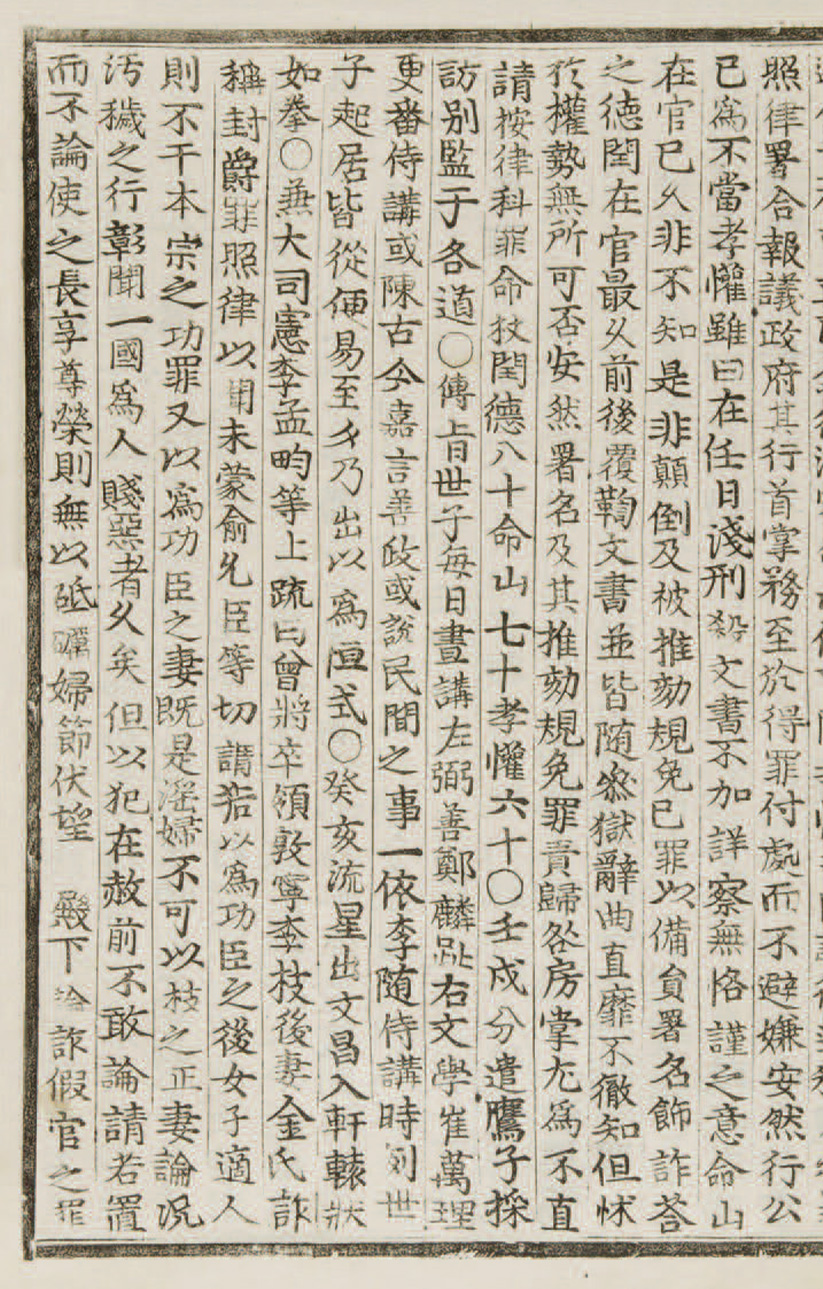 照律署合報議政府其行首掌務至於得罪付處而不避嫌安然行公
已爲不當孝懽雖曰在任日淺刑殺文書不加詳察無恪謹之意命山
在官已久非不知是非顚倒及被推劾規免己罪以備員署名飾詐答
之德閏在官最久前後覆鞫文書並皆随參獄辭曲直靡不徹知但怵
於權勢無所可否安然署名及其推劾規免罪責歸咎房掌尤爲不直
請按律科罪命杖閏德八十命山七十孝懽六十○壬戌分遣鷹子採
訪別監于各道○傳旨世子每日晝講左弼善鄭麟趾右文學崔萬理
更番侍講或陳古今嘉言善政或說民間之事一依李随侍講時例世
子起居皆從便易至夕乃出以爲恒式○癸亥流星出文昌入軒轅狀
如拳○兼大司憲李孟畇等上疏曰曾將卒領敦寧李枝後妻金氏詐
稱封爵罪照律以聞未蒙兪允臣等切謂若以爲功臣之後女子適人
則不干本宗之功罪又以爲功臣之妻旣是淫婦不可以枝之正妻論況
汚穢之行彰聞一國爲人賤惡者久矣但以犯在赦前不敢論請若置
而不論使之長享尊榮則無以砥礪婦節伏望 殿下論詐假官之罪